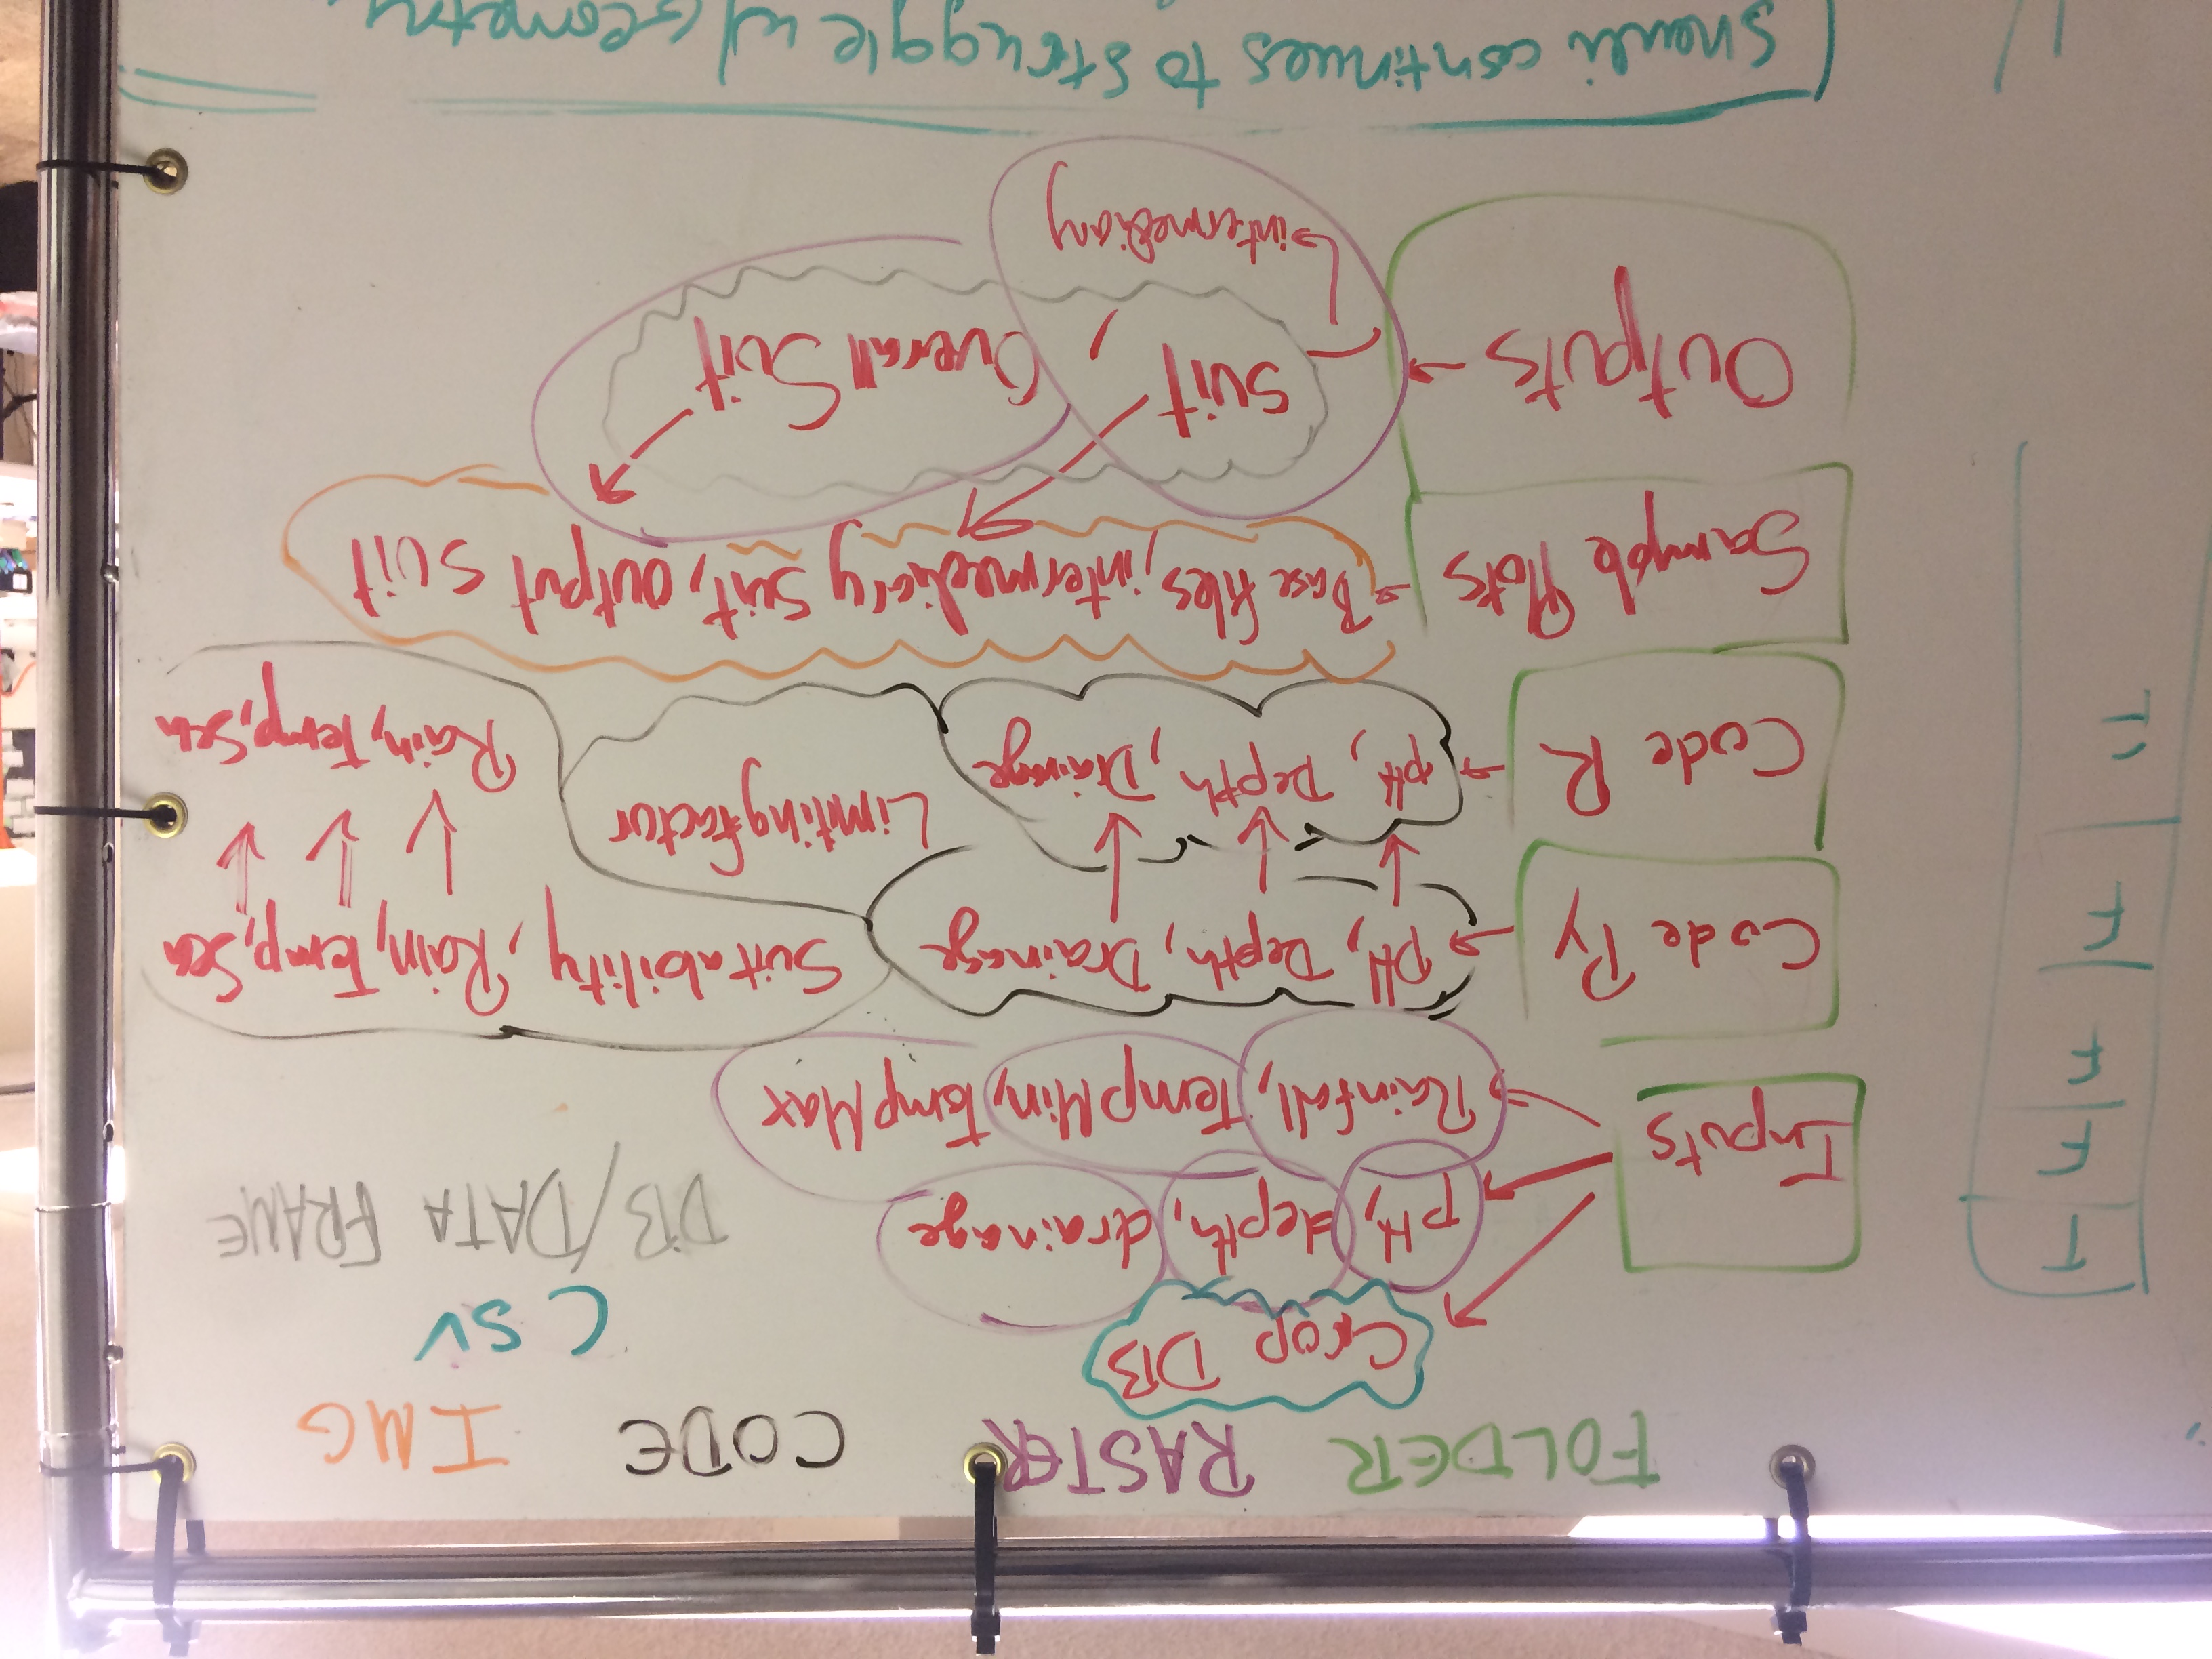 FOLDER RASTER CODE IMG
CSV
DB/DATA FRAME
T
F
F
F
F
Inputs
Crop DB
pH, depth, drainage
Rainfall, TempMin, TempMax
Code Py
pH, Depth, Drainage
Suitability, Rain, Temp, Sea
Limitingfactor
Code R
pH, Depth, Drainage
Rain, Temp, Sea
Sample Plots
Base files, intermediary suit, output suit
Outputs
suit, Overall Suit
intermediary
continues to struggle w/ Geometry